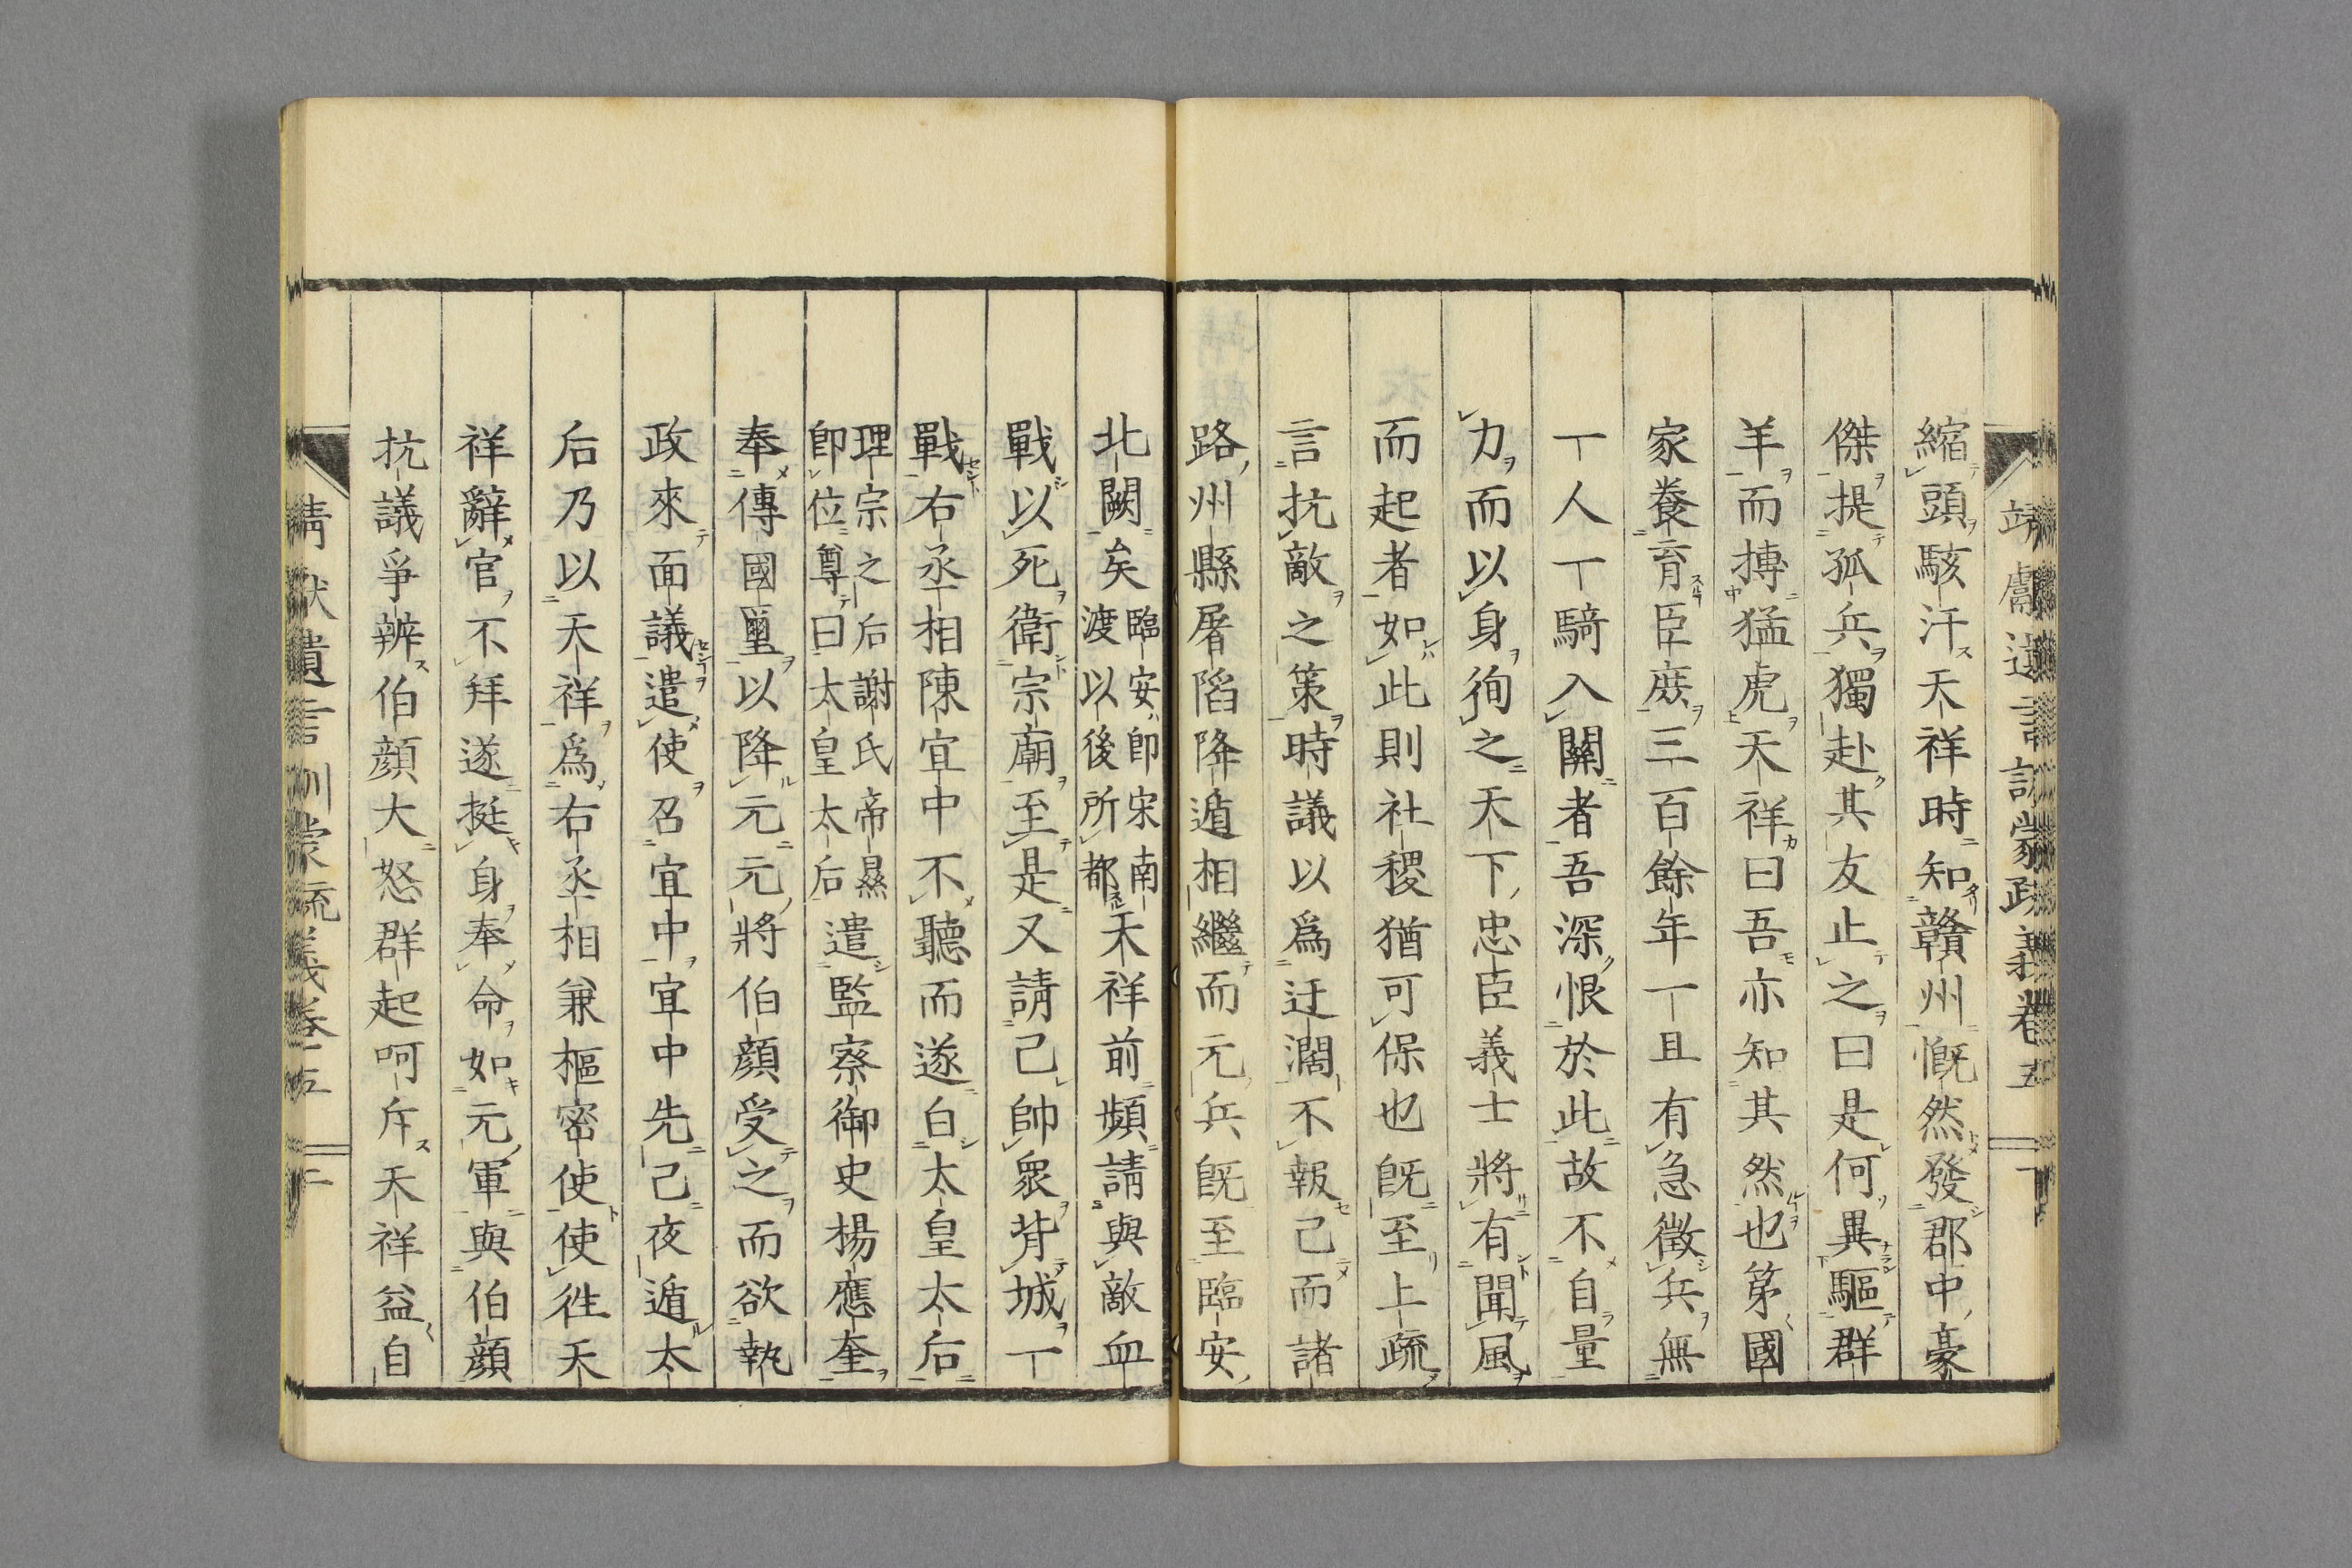 靖獻遺言訓蒙疏義卷五
縮頭駭汗天祥時知贛州慨然發郡中豪
傑提孤兵獨赴其友止之曰是何異驅群
羊而搏猛虎天祥曰吾亦知其然也第國
家養育臣庶三百餘年一旦有急徵兵無
一人一騎入關者吾深恨於此故不自量
力而以身徇之天下忠臣義士將有聞風
而起者如此則社稷猶可保也既至上疏
言抗敵之策時議以爲迂濶不報已而諸
路州縣屠陷降遁相繼而元兵既至臨安
北闕矣臨安即宋南渡以後所都天祥前頻請與敵血
戰以死衛宗廟至是又請己帥衆背城一
戰右丞相陳宜中不聽而遂白太皇太后
理宗之后謝氏帝㬎即位尊曰太皇太后遣監察御史楊應奎
奉傳國璽以降元元將伯顔受之而欲執
政來面議遣使召宜中宜中先已夜遁太
后乃以天祥爲右丞相兼樞密使使徃天
祥辭官不拜遂挺身奉命如元軍與伯顔
抗議爭辨伯顔大怒群起呵斥天祥益自
靖獻遺言訓蒙疏義卷五 二